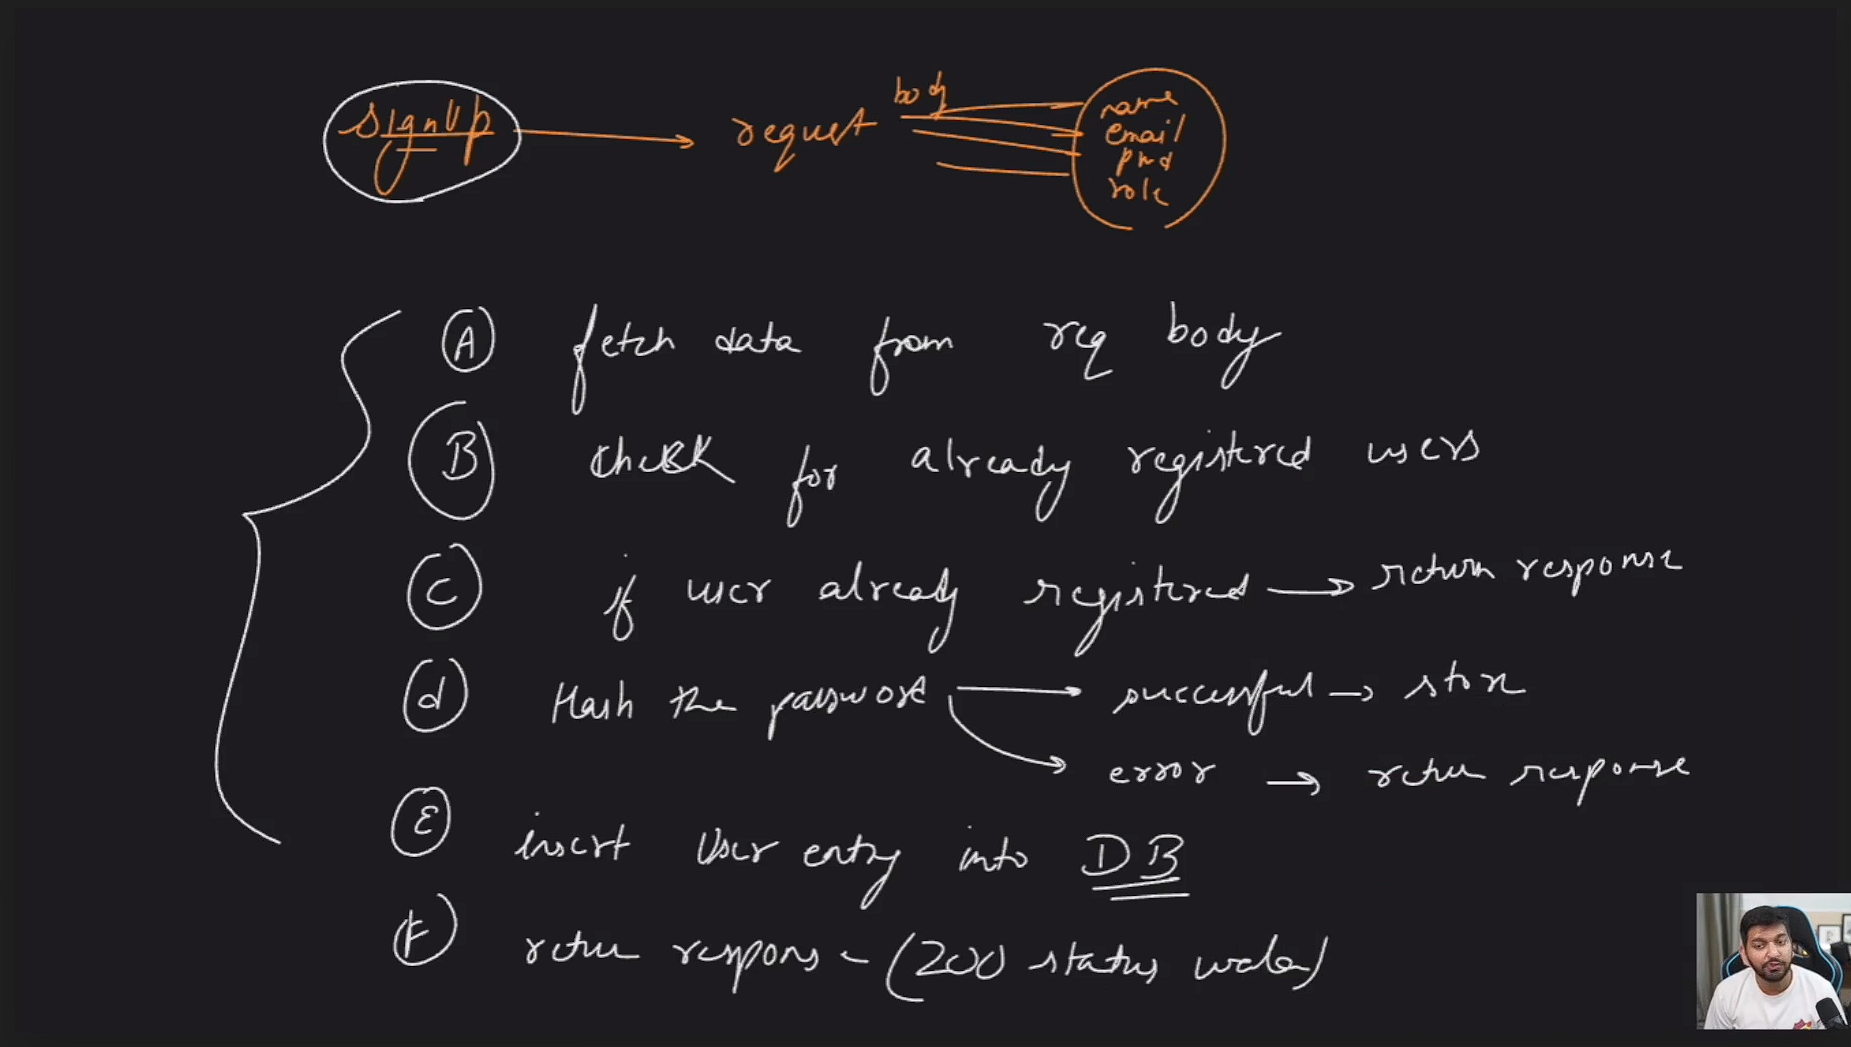 signUp → request body name
email
pwd
role
A fetch data from req body
B check for already registered users
C if user already registered → return response
d Hash the password → successful → store
→ error → retur response
E insert User entry into DB
F retur respons - (200 status wala)